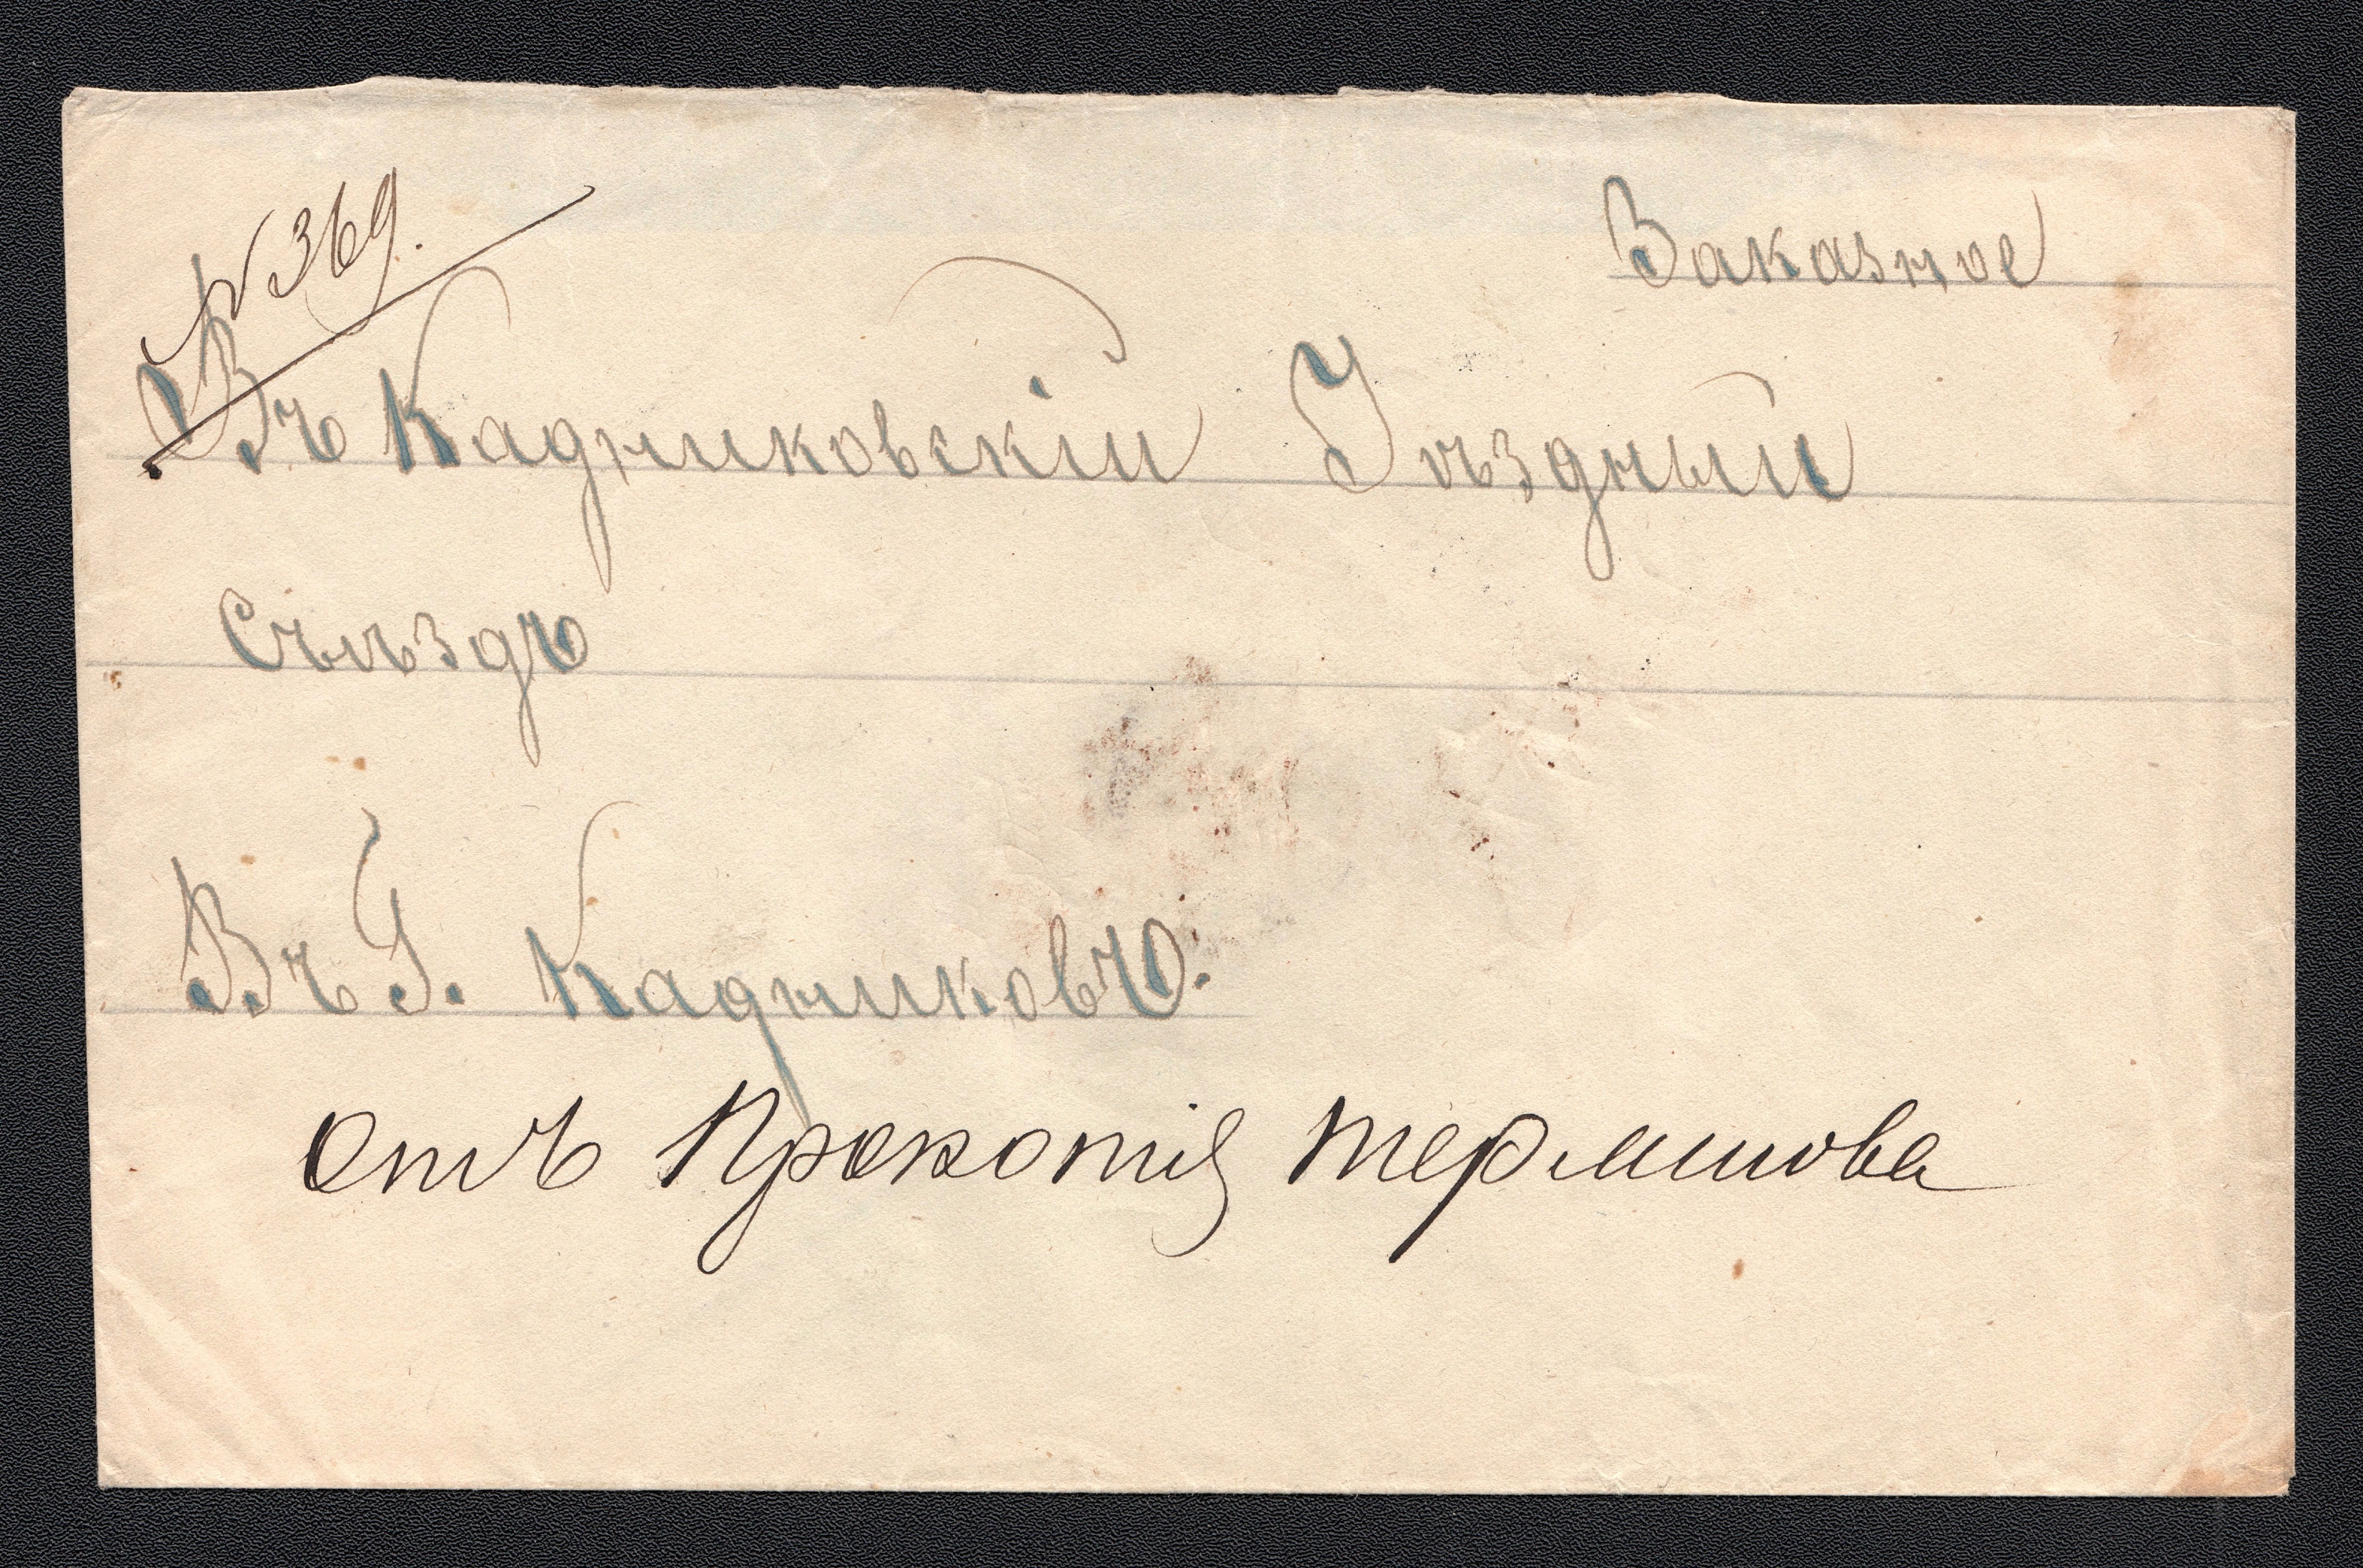 № 369.
Заказное
Въ Кадниковскій Уѣздный
Съѣздъ
Въ Г. Кадниковъ.
Отъ Прокопія